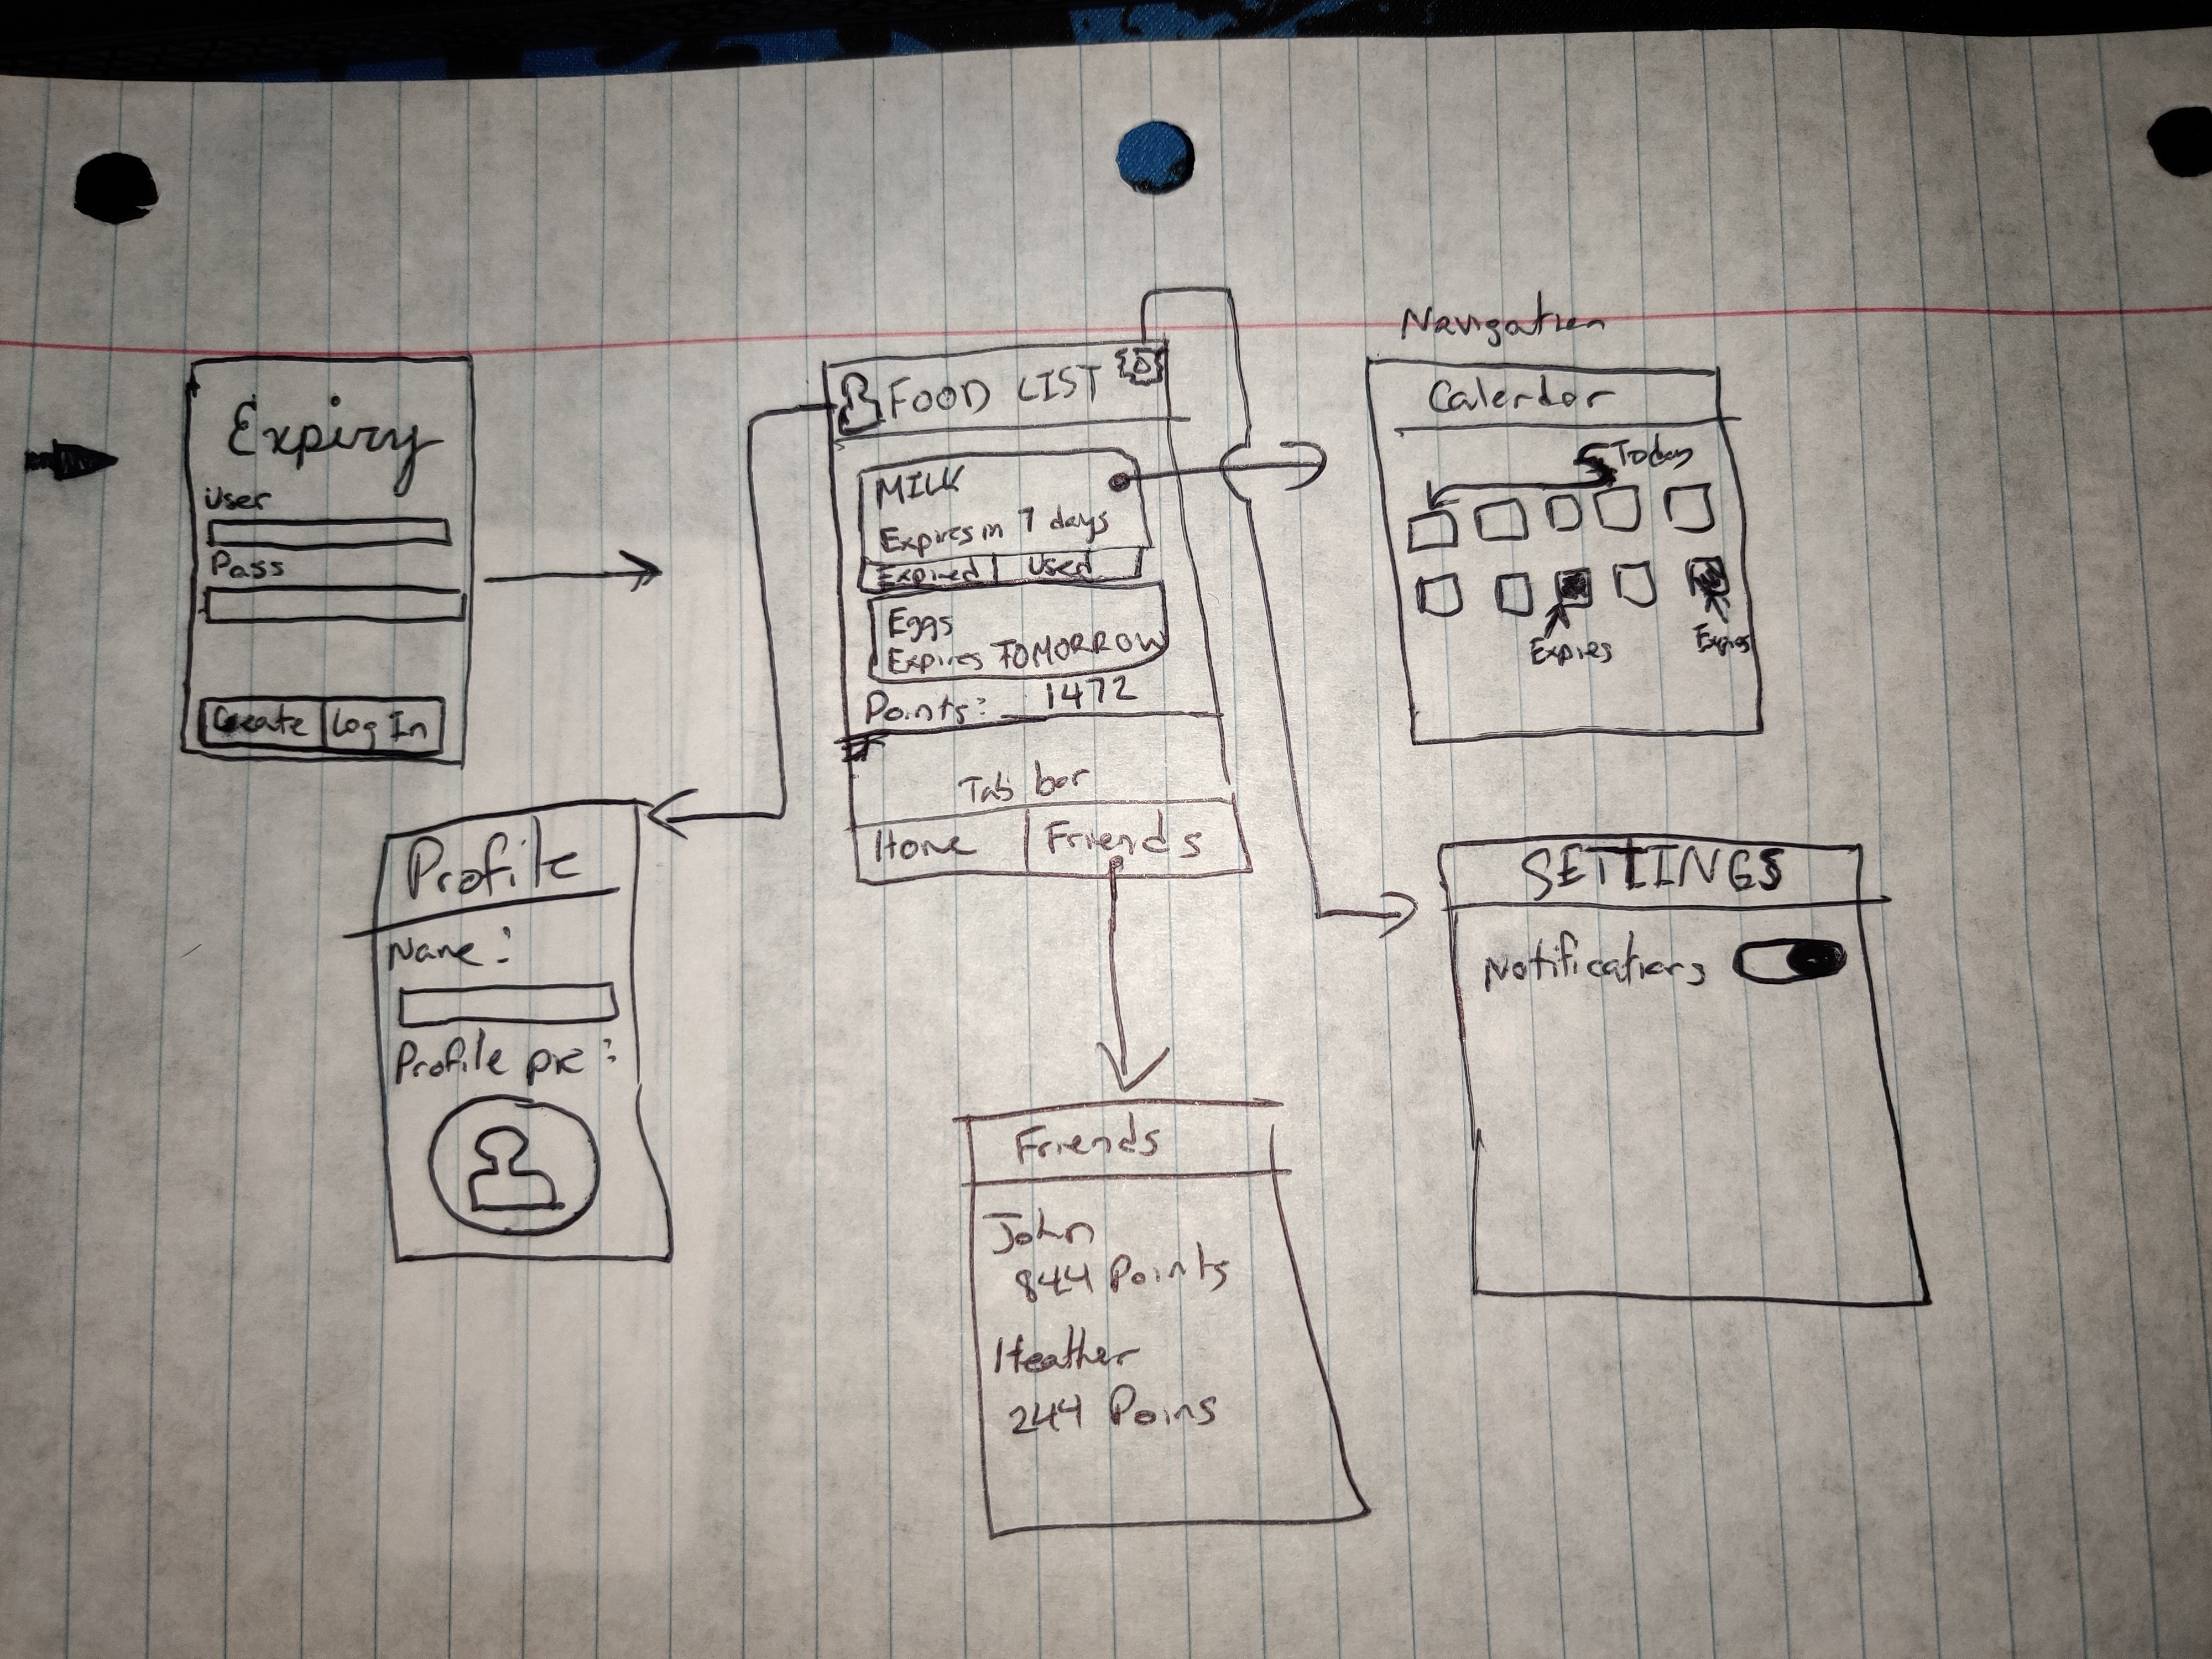 Expiry
User
Pass
Create
Log In
FOOD LIST
MILK
Expires in 7 days
Expired
Used
Eggs
Expires TOMORROW
Points: 1472
Tab bar
Home
Friends
Navigation
Calendar
Today
Expires
Expires
Profile
Name:
Profile pic:
SETTINGS
Notifications
Friends
John
844 Points
Heather
244 Poins